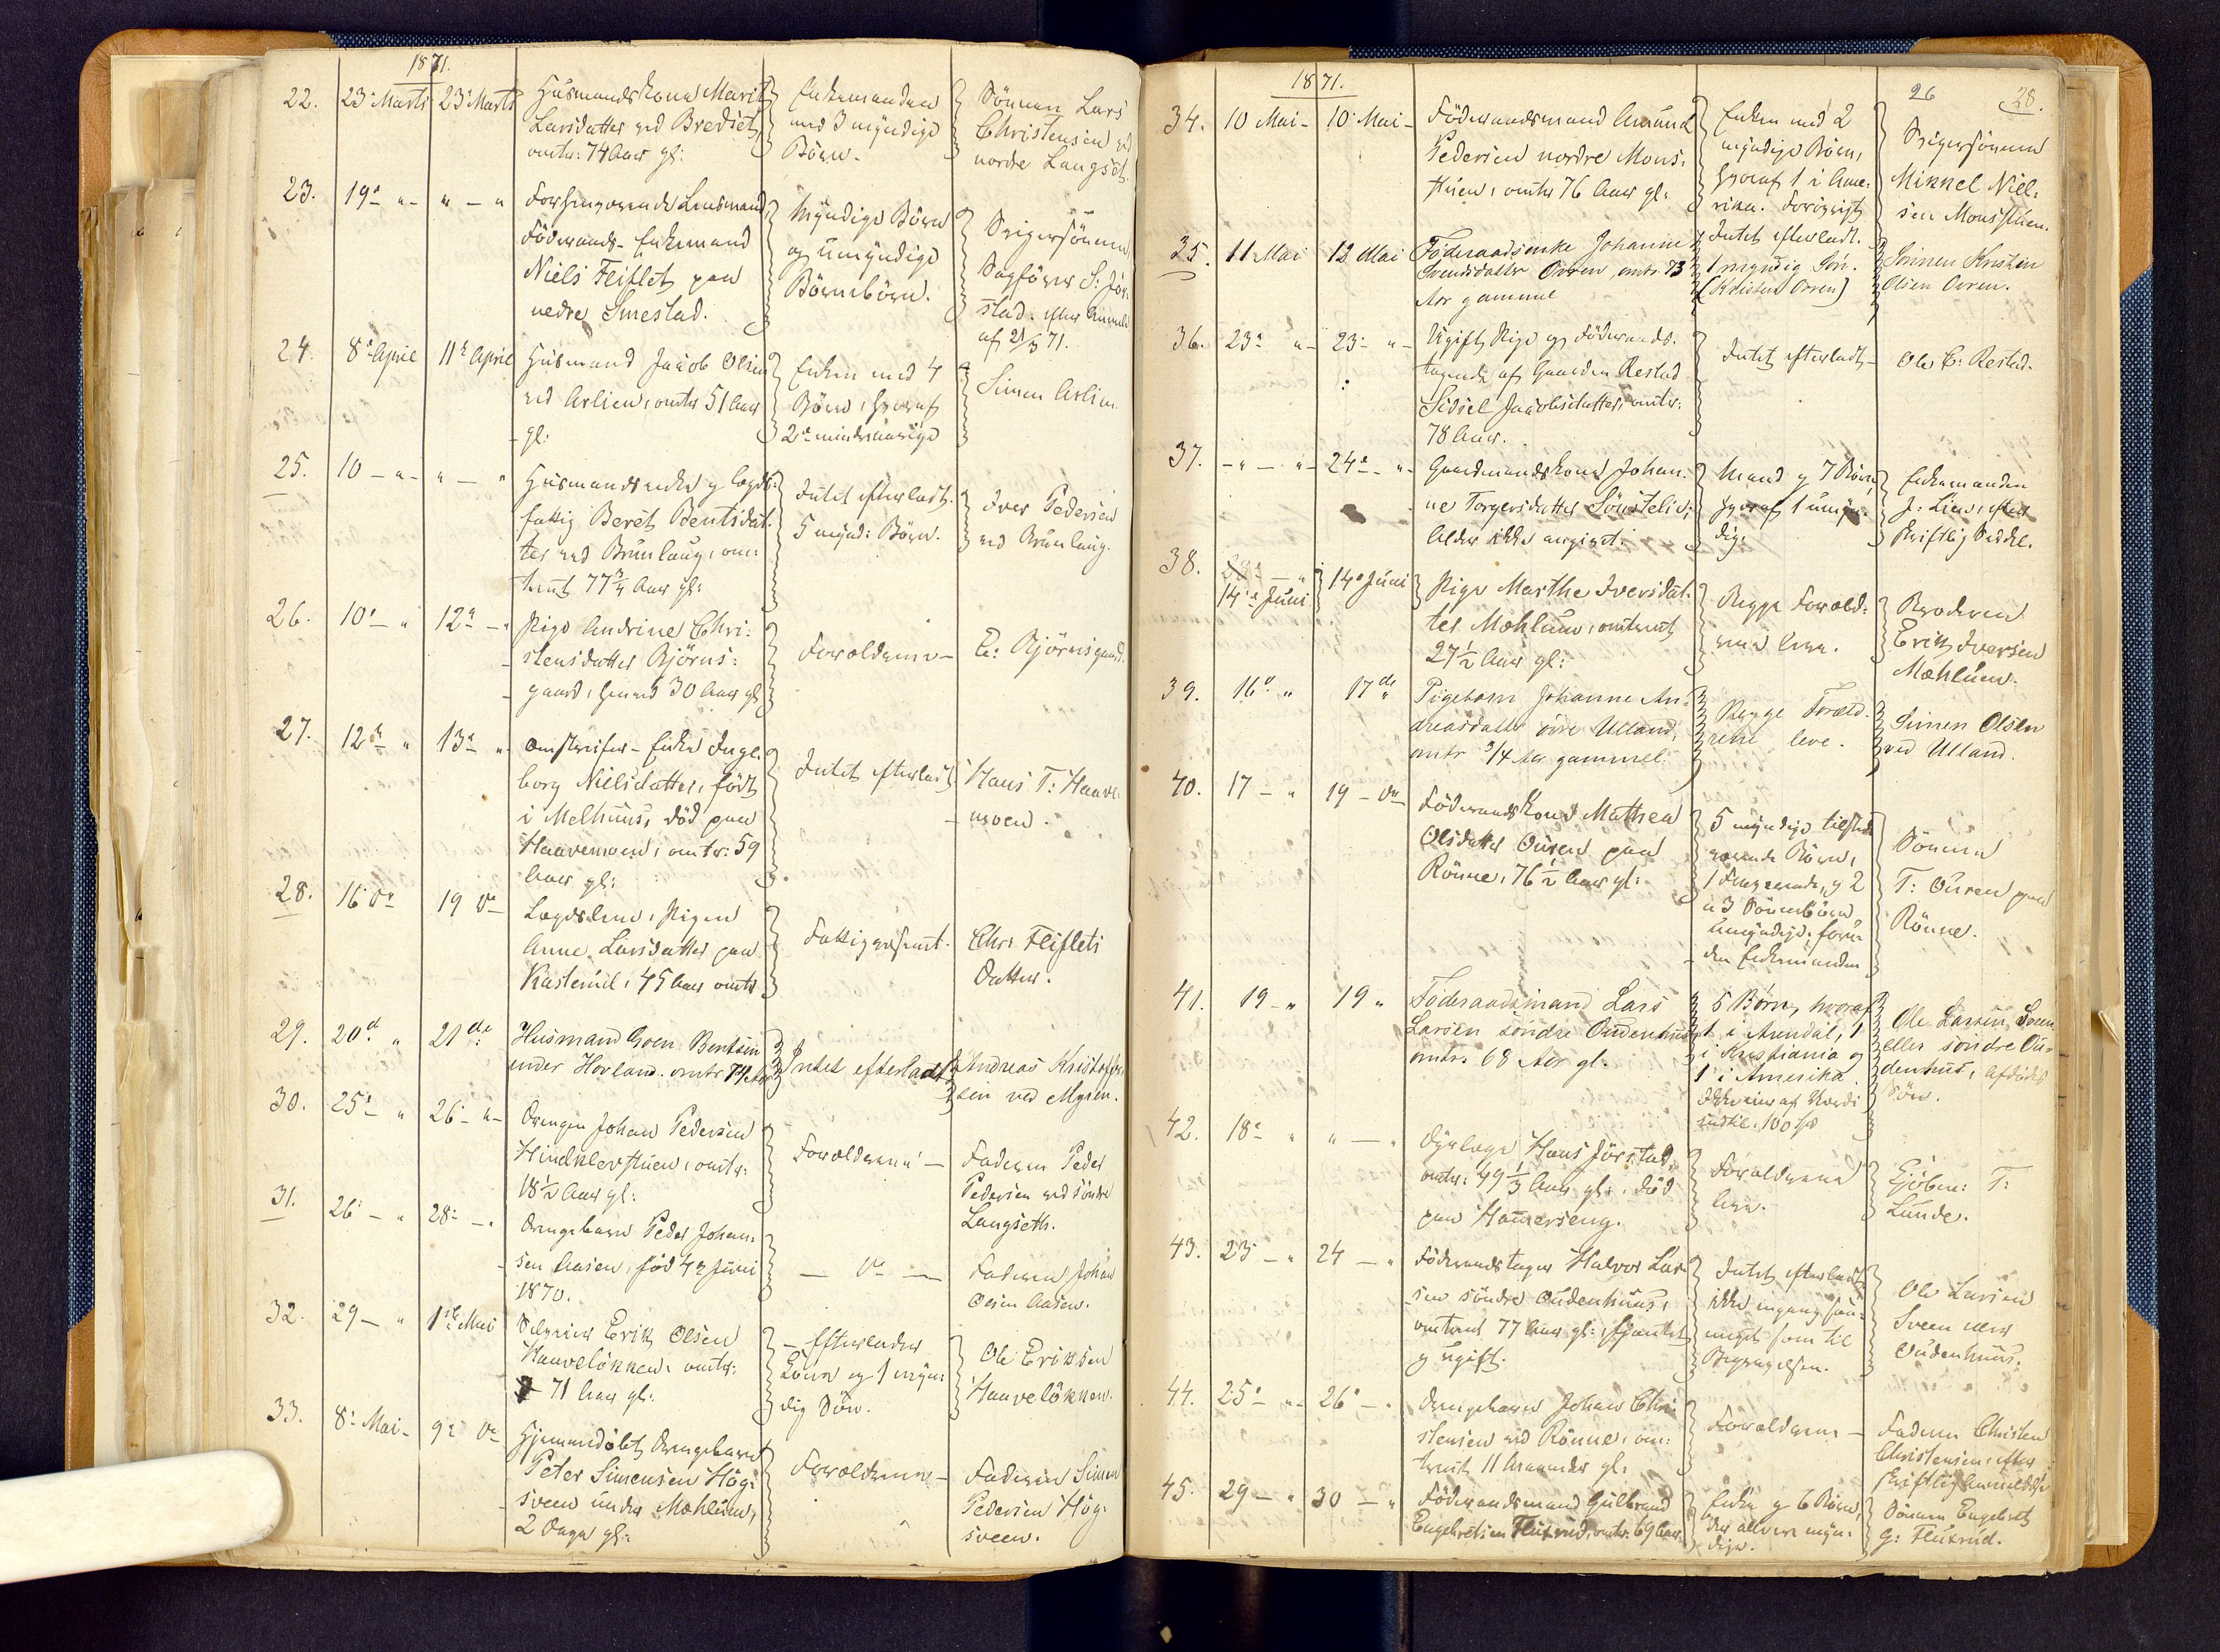 1871.
22. 23' Marts 23' Marts Husmandskone Marit
Larsdatter ved Bredset,
omtr: 74 Aar gl:
Enkemanden
med 3 myndige
Børn.
Sønnen Lars
Christensen ved
nordre Langset.
23. 19' " " — " Forhenværende Lensmand,
Föderaads-Enkemand
Niels Fliflet paa
nedre Smestad.
Myndige Börn
og umyndige
Börnebörn.
Svigersönnen
Sagförer S: Jör-
stad. efter Anmeld
af 21/3 71.
24. 8' April 11' April Husmand Jacob Olsen
ved Aslien, omtr 51 Aar
gl:
Enken med 4
Börn, hvoraf
2 mindreaarige
Simen Aslien
25. 10 — " — " — " Husmandsenke og Lægds-
fattig Beret Bentsdat-
ter ved Brunlaug, om-
trent 77 3/4 Aar gl:
Intet efterladt.
5 mynd: Börn.
Iver Pedersen
ved Brunlaug.
26. 10' — " 12' — " Pige Andrine Chri-
stensdatter Björns-
gaard, henved 30 Aar gl
Forældrene —
E: Björnsgaard.
27. 12' " 13' " Omstreifer-Enke Inge-
borg Nielsdatter, födt
i Melhuus, död paa
Haavemoen, omtr: 59
Aar gl:
Intet efterladt
Hans T: Haave-
moen.
28. 16 do 19 do Lægdslem, Pigen
Anne Larsdatter paa
Kasterud, 45 Aar omtr
Fattigvæsenet.
Chr: Fliflets
Datter.
29. 20d " 21de Husmand Sven Bentsen
under Hovland. omtr 74 Aar
Intet efterladt
Andreas Kristoffer-
sen ved Myren.
30. 25' — " 26' — " Drengen Johan Pedersen
Hindklevstuen, omtr:
18 1/2 Aar gl:
Forældrene —
Faderen Peder
Pedersen ved söndre
Langseth.
31. 26' — " 28' — " Drengebarn Peder Johan-
sen Aasen, föd 4' Juni
1870.
— do —
Faderen Johan
Olsen Aasen.
32. 29 — " 1ste Mai Selveier Erik Olsen
Haavelökken, omtr:
71 Aar gl:
— Efterlader
Kone og 1 myn-
dig Sön.
Ole Eriksen
Haavelökken.
33. 8' Mai — 9' do Hjemmedöbt Drengebarn
Peter Simensen Hög-
sveen under Mæhlum,
2 Dage gl:
Forældrene —
Faderen Simen
Pedersen Hög-
sveen.
1871.
26 28.
34. 10 Mai — 10' Mai — Föderaadsmand Amund
Pedersen nordre Mons-
stuen, omtr 76 Aar gl:
Enken med 2
myndige Börn,
hvoraf 1 i Ame-
rika. Forövrigt
Intet efterladt.
Svigersönnen
Mikkel Niel-
sen Monsstuen.
35. 11 Mai 12 Mai Föderaadsenke Johanne
Svendsdatter Ovren, omtr. 73
Aar gammel
1 myndig Sön.
(Kristen Ovren)
Sönnen Kristen
Olsen Ovren.
36. 23' " — 23' " — Ugift Pige og Föderaads-
tagende af Gaarden Restad
Sidsel Jacobsdatter, omtr:
78 Aar.
Intet efterladt —
Ole C: Restad.
37. — " — " — 24' — " — Gaardmandskone Johan-
ne Torgersdatter Sönsteli;
Alder ikke angivet.
Mand og 7 Börn,
hvoraf 1 umyn-
dig.
Enkemanden
J: Lien, efter
skriftlig Seddel.
38. 14' Juni 14' Juni Pige Marthe Iversdat-
ter Mæhlum, omtrent
27 1/2 Aar gl:
Begge Foræld-
rene leve.
Broderen
Erik Iversen
Mæhlum.
39. 16' " 17de Pigebarn Johanne An-
dreasdatter övre Ulland,
omtr 3/4 Aar gammel.
Begge Foræld-
rene leve.
Simen Olsen
ved Ulland.
40. 17 — " 19 — do Föderaadskone Mathea
Olsdatter Ouren paa
Rönne, 76 1/2 Aar gl:
5 myndige tilstede
værende Börn,
1 fraværende, og 2
a 3 Sönnebörn
umyndige, foru-
den Enkemanden
Sönnen
T: Ouren paa
Rönne.
41. 19 — " 19 " Föderaadsmand Lars
Larsen söndre Oudenhuus
omtr: 68 Aar gl.
5 Börn, hvoraf
1 i Arendal, 1
i Kristiania og
1 i Amerika.
indtil 100 Spd
Ole Larsen Sveen
eller söndre Ou-
denhus, Afdödes
Sön.
42. 18' " " — " Dyrlæge Hans Jörstad,
omtr: 49 1/3 Aar gl:, död
paa Hammerseng.
Forældrene
leve.
Kjöbm: T:
Lunde.
43. 23 — " 24 — " Föderaadstager Halvor Lar-
sen söndre Oudenhuus,
omtrent 77 Aar gl:,
og ugift.
Intet efterladt
ikke engang saa-
meget som til
Begravelsen.
Ole Larsen
Sveen eller
Oudenhuus.
44. 25' — " — 26' — " Drengebarn Johan Chri-
stensen ved Rönne, om-
trent 11 Maaneder gl:
Forældrene —
Faderen Christen
Christensen, efter
skriftlig Anmeldelse
45. 29 — " 30 — " Föderaadsmand Gulbrand
Engebretsen Fluxrud, omtr. 69 Aar.
Enke og 6 Börn,
der alle ere myn-
dige.
Sönnen Engebret
G: Fluxrud.